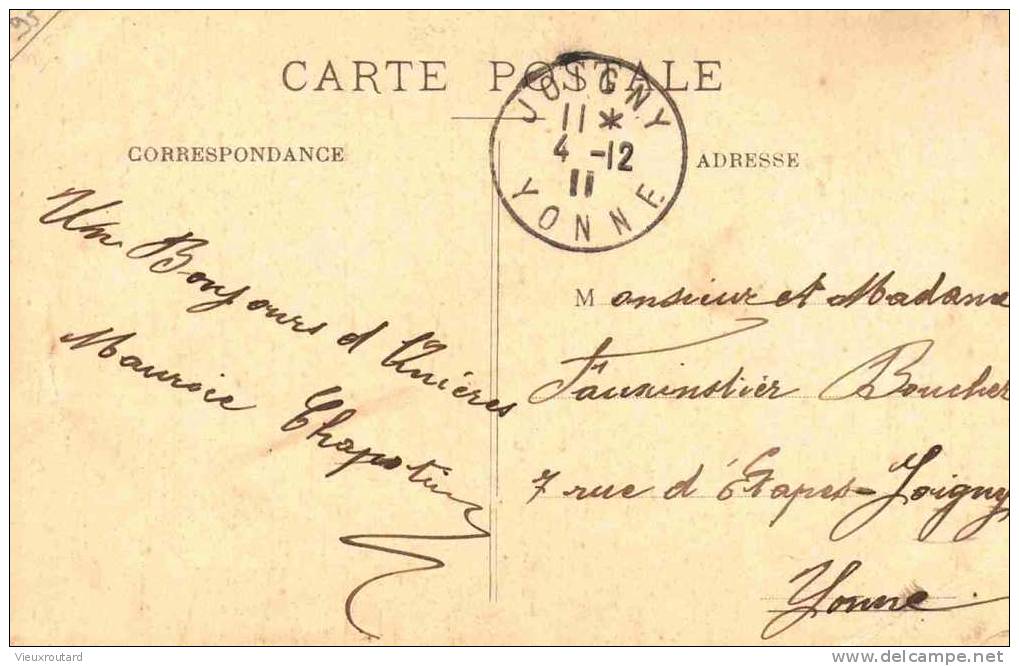 95
CARTE POSTALE
JOIGNY
11 *
4 -12
11
YONNE
CORRESPONDANCE
ADRESSE
Un Bonjours d'Anières
Mauroie Chapotin
Monsieur et Madame
Boucher
7 rue d'Étapes - Joigny
Yonne
Vieuxroutard
delcampe.net